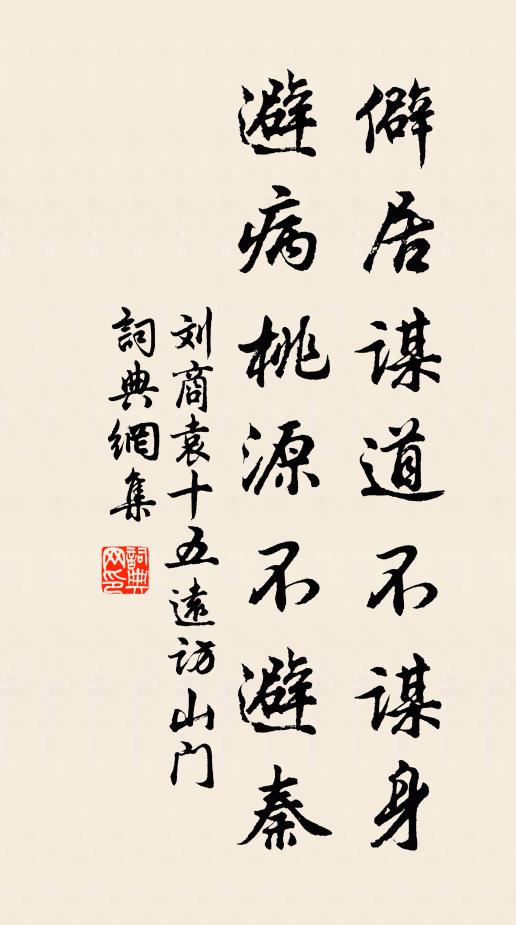 僻居谋道不谋身
避病桃源不避秦
刘商袁十五远访山门
词典网集
词典网印